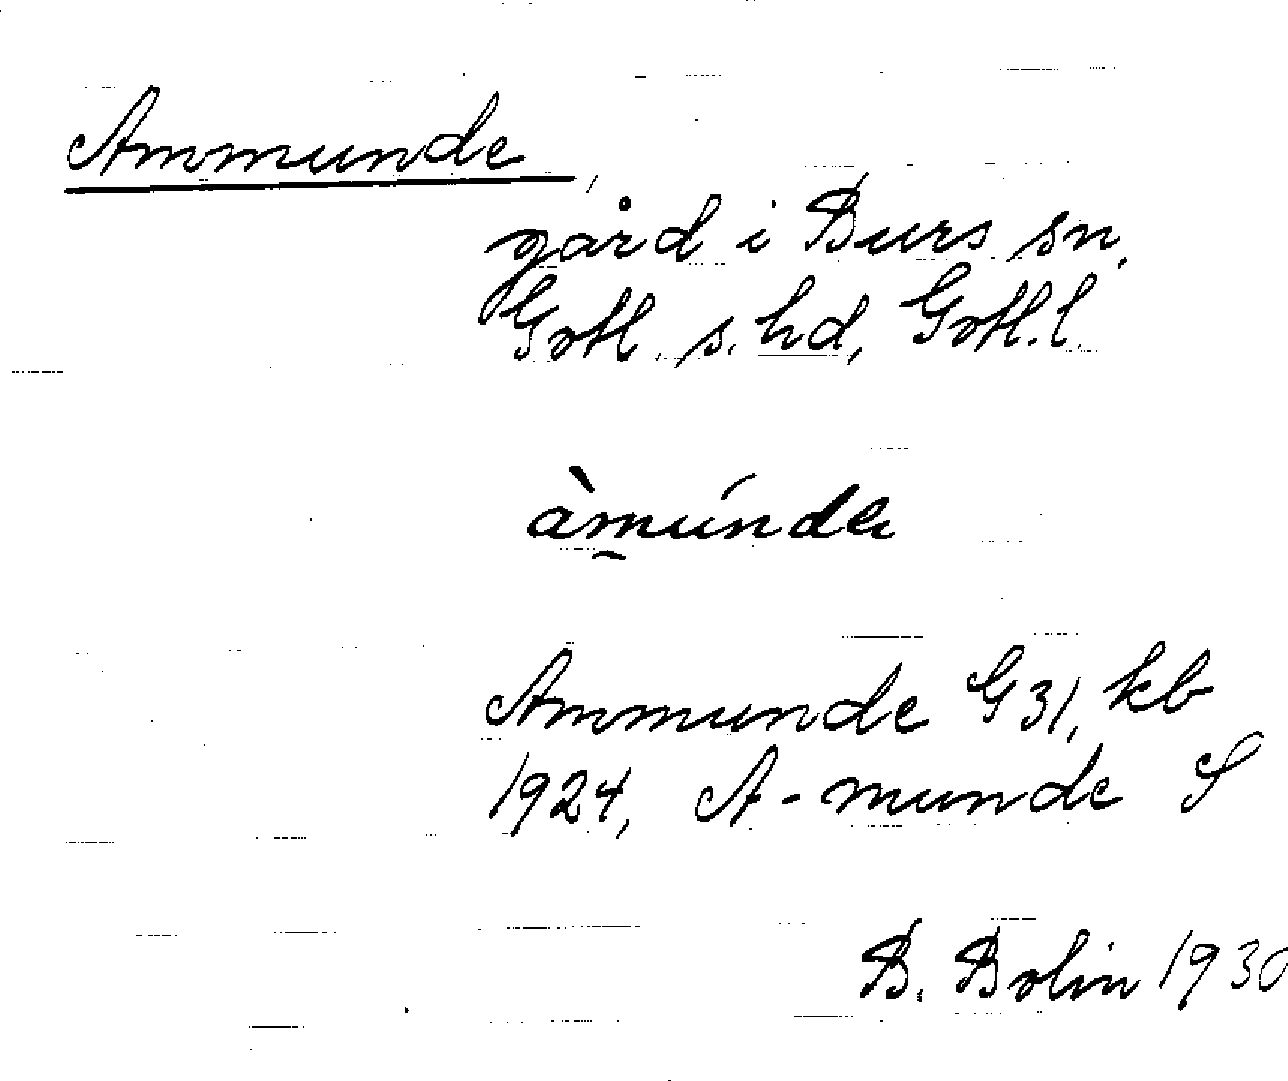 Ammunde,
gård i Burs sn,
Gotl. s. hd, Gotl. l.
àmúnde
Ammunde G 31, kb
1924, A-munde S
B. Bolin 1930